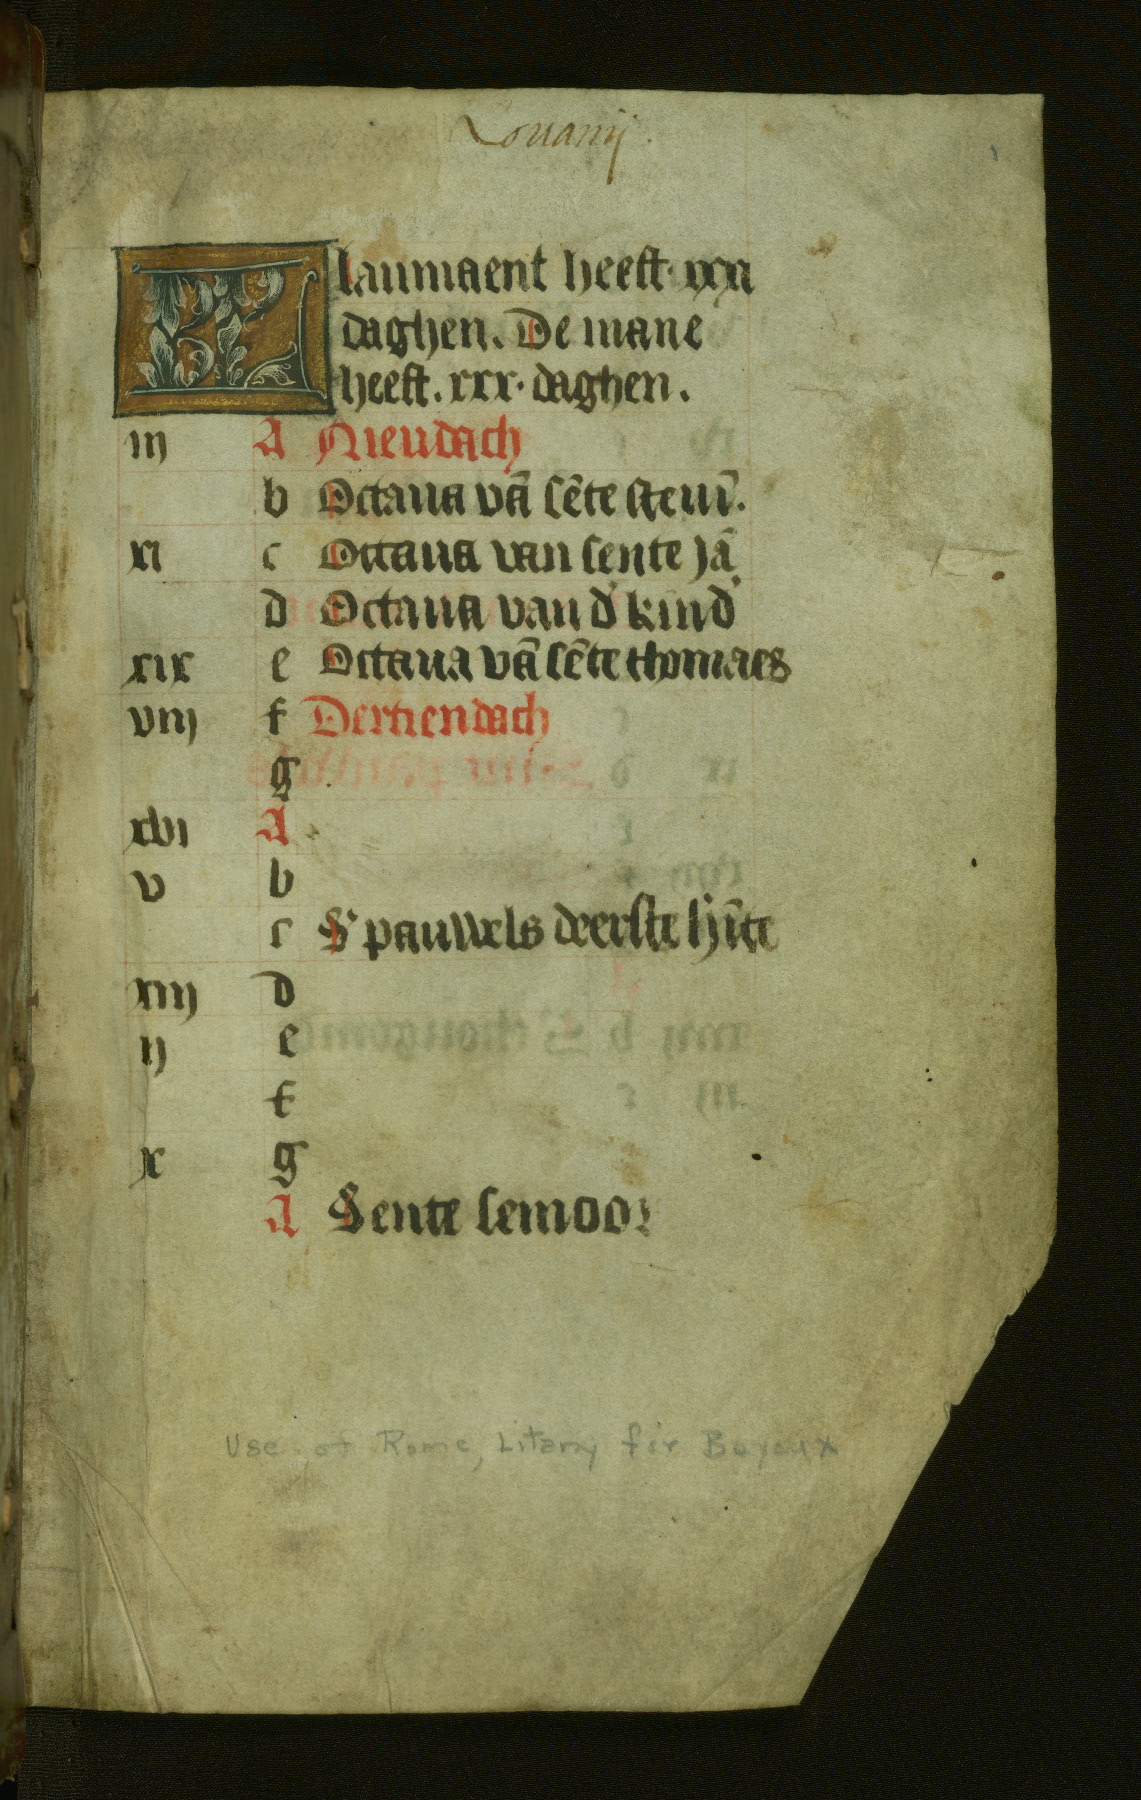 Louanij.
KL laumaent heeft. xxxi
daghen. De mane
heeft. xxx. daghen.
iij A Nieudach
b Octaua vā sēte steuī.
xi c Octaua van sente jā
d Octaua van d' kind'
xix e Octaua vā sēte thomaes
viij f Dertiendach
g
xvi A
v b
c S' pauwels deerste h'īte
xiij d
ij e
f
x g
A Sente Lemoor
Use of Rome, Litany for Bayeux